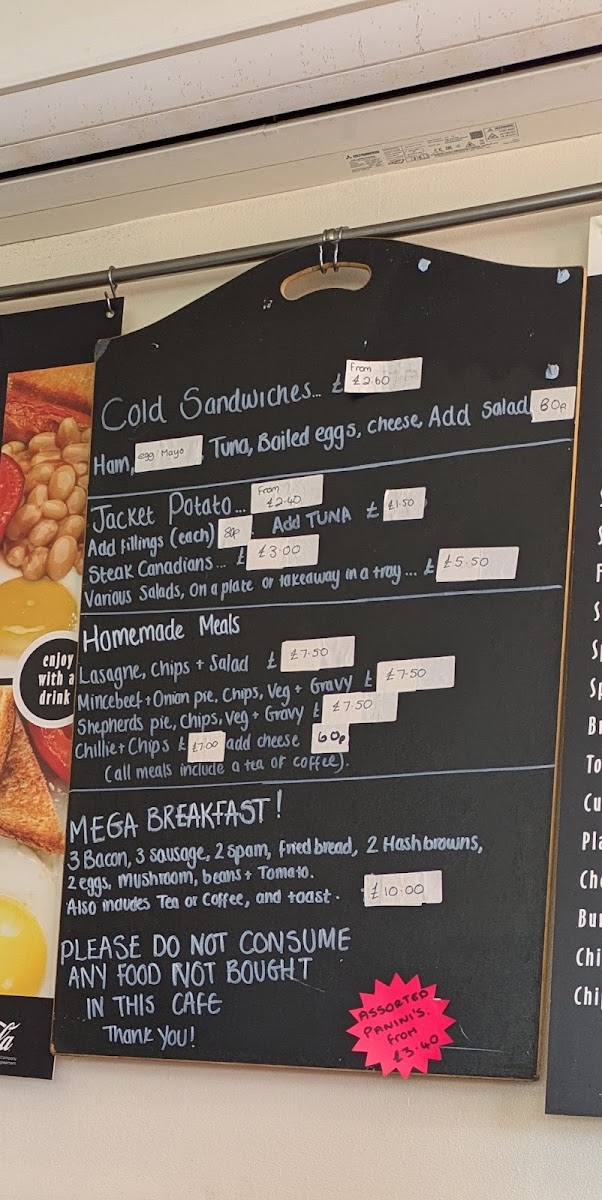 From
Cold Sandwiches... £ £2.60
Ham, egg Mayo Tuna, Boiled eggs, cheese, Add Salad 80p
From
Jacket Potato... £2.40
Add fillings (each) 80p. Add TUNA £ £1.50
Steak Canadians... £ £3.00
Various Salads, on a plate or takeaway in a tray... £ £5.50
Homemade Meals
Lasagne, Chips + Salad £ £7.50
Mincebeef + Onion pie, Chips, Veg + Gravy £ £7.50
Shepherds pie, Chips, Veg + Gravy £ £7.50
Chillie + Chips £ £7.00 add cheese 60p
(all meals include a tea or coffee).
MEGA BREAKFAST!
3 Bacon, 3 sausage, 2 spam, fried bread, 2 Hash browns,
2 eggs, mushroom, beans + Tomato.
Also includes Tea or Coffee, and toast. £10.00
PLEASE DO NOT CONSUME
ANY FOOD NOT BOUGHT
IN THIS CAFE
Thank you!
ASSORTED
PANINI'S.
from
£3.40
enjoy
with a
drink